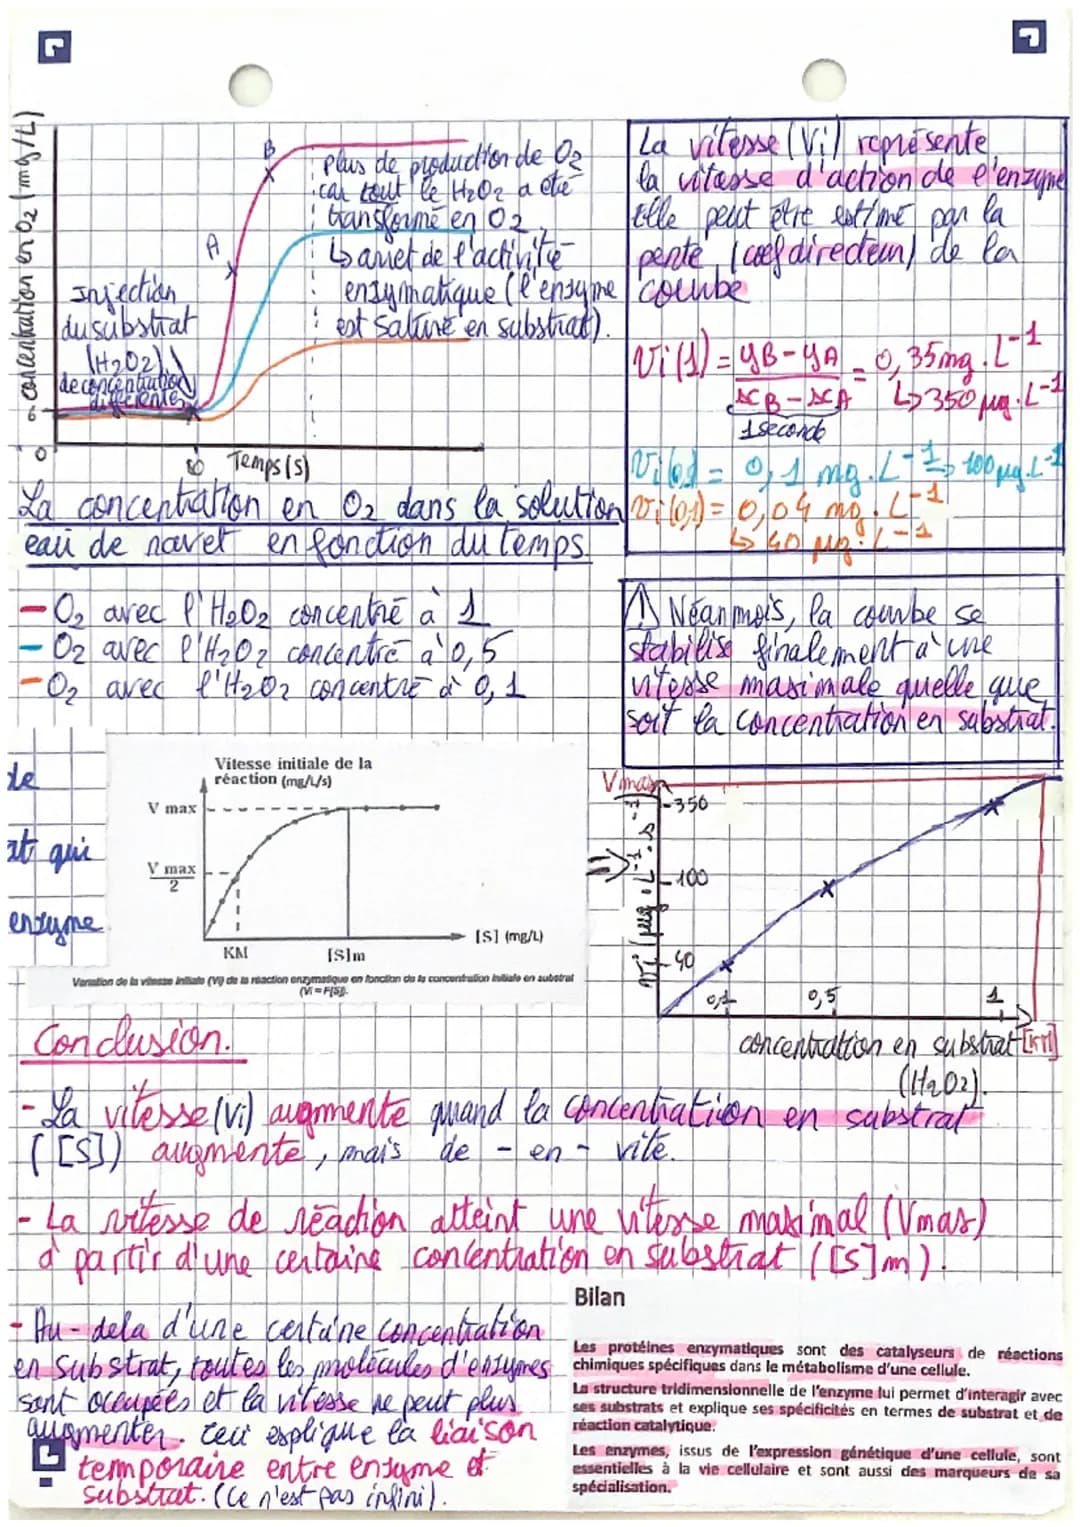 concentration en O2 (mg/L)
B
A
plus de production de O2
car tout le H2O2 a été
transformé en O2.
↳ arret de l'activité
enzymatique (l'enzyme
est saturé en substrat).
Injection
du substrat
(H2O2)
de concentration
différente
6
0
Temps (s)
La concentration en O2 dans la solution
eau de navet en fonction du temps.
- O2 avec l'H2O2 concentré à 1
- O2 avec l'H2O2 concentré à 0,5
- O2 avec l'H2O2 concentré à 0,1
La vitesse (Vi) représente
la vitesse d'action de l'enzyme
Elle peut être estimé par la
pente (coef directeur) de la
courbe
Vi(1) = yB - yA / xB - xA = 0,35 mg.L-1
↳ 350 µg.L-1
1 seconde
= 0,1 mg.L-1 → 100 µg.L-1
Vi(0,1) = 0,04 mg.L-1
↳ 40 µg.L-1
⚠ Néanmois, la courbe se
stabilise finalement à une
vitesse maximale quelle que
soit la concentration en substrat.
de
at qui
enzyme
Vitesse initiale de la
réaction (mg/L/s)
V max
V max
2
KM
[S]m
[S] (mg/L)
Variation de la vitesse initiale (Vi) de la réaction enzymatique en fonction de la concentration initiale en substrat
(Vi = F[S]).
⇒
Vmax
350
100
40
Vi (µg.L-1.s-1)
0,1
0,5
1
concentration en substrat [KM]
(H2O2).
Conclusion.
- La vitesse (Vi) augmente quand la concentration en substrat
([S]) augmente, mais de - en - vite.
- La vitesse de réaction atteint une vitesse maximal (Vmax)
à partir d'une certaine concentration en substrat ([S]m).
- Au-dela d'une certaine concentration
en substrat, toutes les molécules d'enzymes
sont occupées et la vitesse ne peut plus
augmenter. Ceci explique la liaison
temporaire entre enzyme et
substrat. (Ce n'est pas infini).
Bilan
Les protéines enzymatiques sont des catalyseurs de réactions
chimiques spécifiques dans le métabolisme d'une cellule.
La structure tridimensionnelle de l'enzyme lui permet d'interagir avec
ses substrats et explique ses spécificités en termes de substrat et de
réaction catalytique.
Les enzymes, issus de l'expression génétique d'une cellule, sont
essentielles à la vie cellulaire et sont aussi des marqueurs de sa
spécialisation.